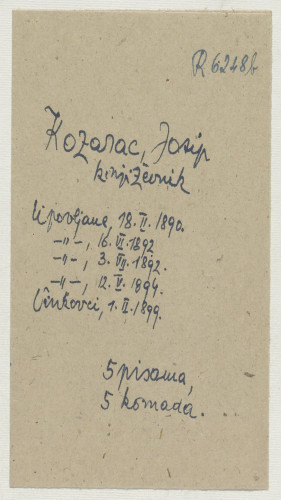 R 6248b
Kozarac, Josip
književnik
Lipovljane, 18. II. 1890.
—„—, 16. VI. 1892
—„—, 3. VII. 1892.
—„—, 12. V. 1894.
Vinkovci, 1. II. 1899.
5 pisama,
5 komada.